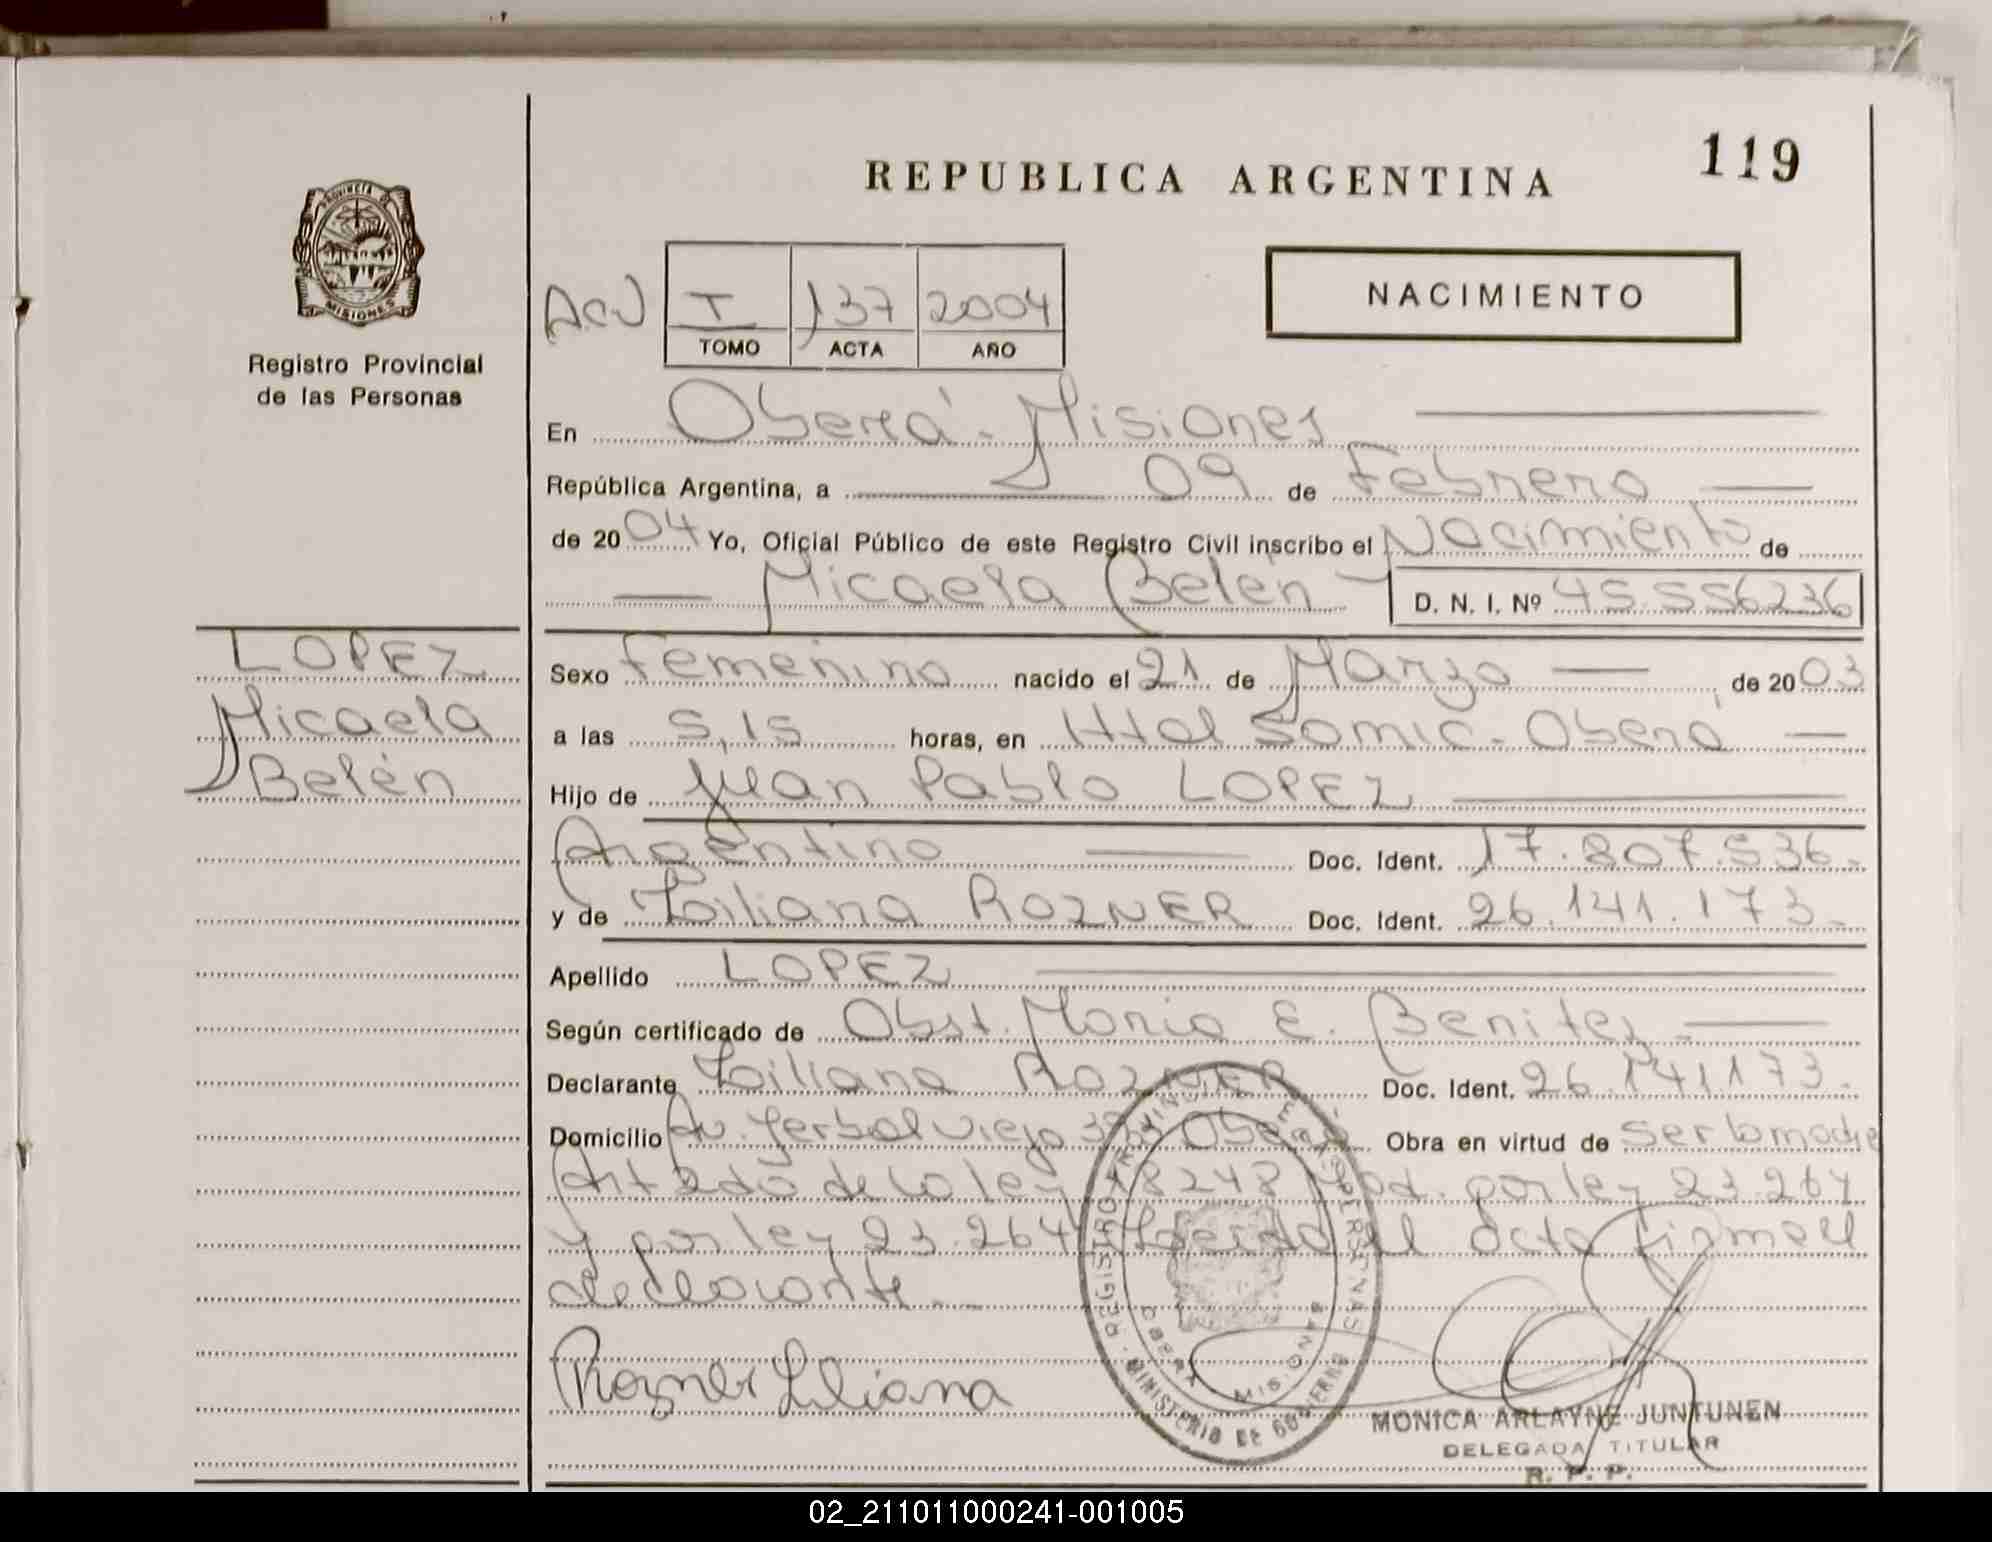 REPUBLICA ARGENTINA
119
PROVINCIA DE
MISIONES
Registro Provincial
de las Personas
T 137 2004
TOMO ACTA AÑO
NACIMIENTO
En Oberá - Misiones
República Argentina, a 09 de Febrero
de 2004 Yo, Oficial Público de este Registro Civil inscribo el Nacimiento de
Micaela Belén D. N. I. Nº 45.556236
LOPEZ
Micaela
Belén
Sexo Femenino nacido el 21 de Marzo de 2003
a las 5,15 horas, en Htal Samic - Oberá
Hijo de Juan Pablo LOPEZ
Argentino Doc. Ident. 17.807.536.
y de Liliana ROZNER Doc. Ident. 26.141.173.
Apellido LOPEZ
Según certificado de Obst. Maria E. Benitez
Declarante Liliana ROZNER Doc. Ident. 26.141.173.
Domicilio Av. Yerbal Viejo Oberá Obra en virtud de Ser la madre
de la ley 18248 Mod. por ley 23.264
y por ley 23.264 Leida el acta firma el
declarante.
Rozner Liliana
MINISTERIO DE GOBIERNO
OBERA MISIONES
MONICA ARLAYNE JUNTUNEN
DELEGADA TITULAR
R. P. P.
02_211011000241-001005